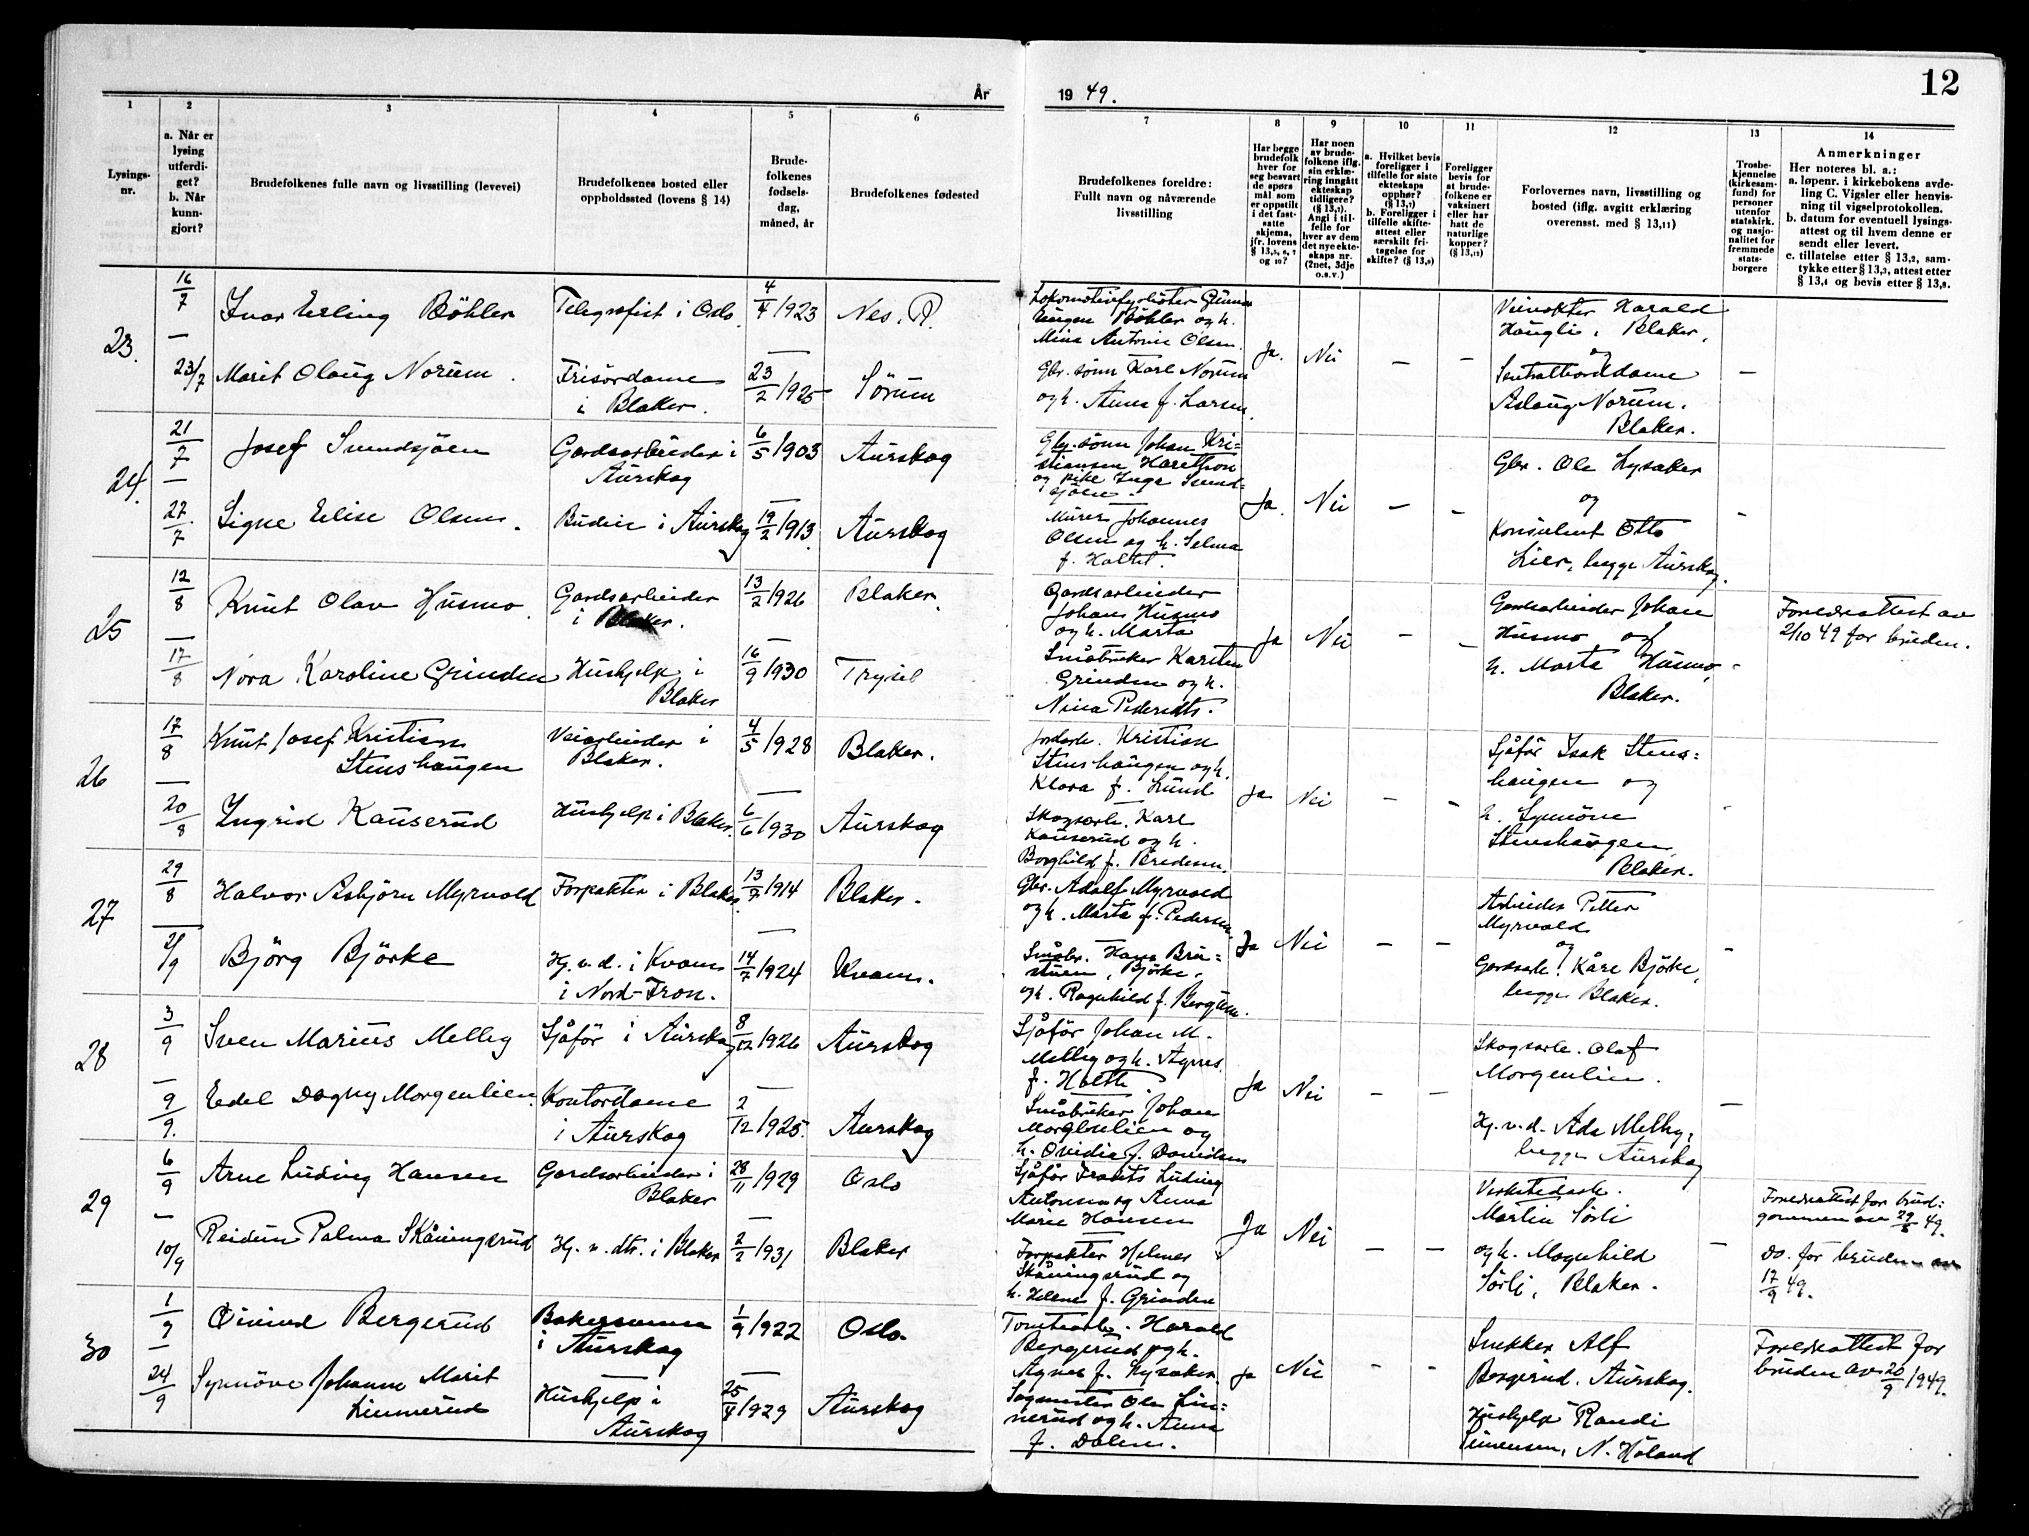 År 1949.
12
1 2 3 4 5 6 7 8 9 10 11 12 13 14
Lysings-
nr.
a. Når er
lysing
utferdi-
get?
b. Når
kunn-
gjort?
Brudefolkenes fulle navn og livsstilling (levevei)
Brudefolkenes bosted eller
oppholdssted (lovens § 14)
Brude-
folkenes
fødsels-
dag,
måned, år
Brudefolkenes fødested
Brudefolkenes foreldre:
Fullt navn og nåværende
livsstilling
Har begge
brudefolk
hver for
seg besvart
de spørs
mål som
er oppstilt
i det fast-
satte
skjema,
jfr. lovens
Har noen
av brude-
folkene iflg.
sin erklæ-
ring inngått
ekteskap
tidligere?
Angi i til-
felle for
hver av dem
det nye ekte-
skaps nr.
(2net, 3dje
o.s.v.)
a. Hvilket bevis
foreligger i
tilfelle for siste
ekteskaps
opphør?
b. Foreligger i
tilfelle skifte-
attest eller
særskilt fri-
tagelse for
Foreligger
bevis for
at brude-
folkene er
vaksinert
eller har
hatt de
naturlige
kopper?
Forlovernes navn, livsstilling og
bosted (iflg. avgitt erklæring
overensst. med § 13,11)
Trosbe-
kjennelse
(kirkesam-
fund) for
personer
utenfor
statskirk.
og nasjo-
nalitet for
fremmede
stats-
borgere
Anmerkninger
Her noteres bl. a.:
a. løpenr. i kirkebokens avde-
ling C. Vigsler eller henvis-
ning til vigselprotokollen.
b. datum for eventuell lysings-
attest og til hvem denne er
sendt eller levert.
c. tillatelse etter § 13,2, sam-
tykke etter § 13,3, attest etter
§ 13,4 og bevis etter § 13,8.
23.
16/7
Ivar Erling Böhler
Telegrafist i Oslo.
4/4 1923
Nes, R.
Eugen Böhler og h.
Mina Antonie Olsen.
Ja. Nei — —
Harald
Haugli, Blaker,
og
23/7
Marit Olaug Norum.
Frisördame
i Blaker.
23/2 1925
Sörum
Gbr. sönn Karl Norum
og h. Anna f. Larsen.
Sentralborddame
Aslaug Norum,
Blaker.
24.
21/7
Josef Sundsjöen
Gardsarbeider i
Aurskog
6/5 1903
Aurskog
Gbr. sönn Johan Kri-
stiansen
og pike Inga Sund-
sjöen.
Ja. Nei — —
Gbr. Ole Lysaker
og
27/7
Signe Elise Olsen.
Budeie i Aurskog
19/2 1913.
Aurskog
Murer Johannes
Olsen og h. Selma
f. Holtet.
Konsulent Otto
Lier, begge Aurskog.
25
12/8
Knut Olav Husmo.
Gardsarbeider
i Blaker.
13/2 1926
Blaker.
Gardsarbeider
Johan Husmo
og h. Marta
Ja Nei — —
Gardsarbeider Johan
Husmo og
h. Marta Husmo,
Blaker.
Foreldreattest av
2/10 49 for bruden.
17/8
Nora Karoline Grinden
Hushjelp i
Blaker
16/9 1930
Trysil
Småbruker Karsten
Grinden og h.
Nina Pedersdtr.
26
17/8
Knut Josef Kristian
Stenshaugen
Veiarbeider i
Blaker.
4/5 1928
Blaker.
Jordarb. Kristian
Stenshaugen og h.
Klara f. Lund
Ja Nei — —
Sjåför Isak Stens-
haugen og
h. Synnöve
Stenshaugen,
Blaker.
20/8
Ingrid Kauserud
Hushjelp i Blaker.
6/6 1930
Aurskog
Skogsarb. Karl
Kauserud og h.
Borghild f. Bredesen.
27
29/8
Halvor Asbjörn Myrvold
Forpakter i Blaker.
13/7 1914
Blaker.
Gbr. Adolf Myrvold
og h. Marta f. Pedersen.
Ja Nei — —
Arbeider Petter
Myrvold
og
21/9
Björg Björke
Hj. v. d. i Kvam
i Nord-Fron.
14/7 1924
Kvam.
Småbr. Hans Bru-
stuen, Björke,
og h. Ragnhild f. Bergum.
Gardsarb. Kåre Björke,
begge Blaker.
28
3/9
Sven Marius Melby
Sjåför i Aurskog
8/12 1926
Aurskog
Sjåför Johan M.
Melby og h. Agnes
f. Holth.
Ja Nei — —
Skogsarb. Olaf
Morgenlien.
9/9.
Edel Dagny Morgenlien.
Kontordame
i Aurskog
2/12 1925.
Aurskog
Småbruker Johan
Morgenlien og
h. Ovidia f. Davidsen
Hj. v. d. Ada Melby,
begge Aurskog
29
6/9
Arne Ludvig Hansen
Gardsarbeider i
Blaker
28/11 1929
Oslo
Sjåför Frants Ludvig
Antonsen og Anna
Marie Hansen
Ja Nei — —
Verkstedarb.
Martin Sörli
og h. Magnhild
Sörli, Blaker.
Foreldreattest for brud-
gommen av 29/8 49.
Do. for bruden av
17/9 49.
10/9
Reidun Palma Skåningsrud
Hj. v. dtr. i Blaker
2/2 1931
Blaker
Forpakter Helmer
Skåningsrud og
h. Helene f. Grinden
30
1/9
Öivind Bergerud
Bakersvenn
i Aurskog
1/9 1922
Oslo.
Tomtearb. Harald
Bergerud og h.
Agnes f. Lysaker.
Ja Nei - -
Snekker Alf
Bergerud, Aurskog.
Foreldreattest for
bruden av 20/9 1949.
24/9
Synnöve Johanne Marit
Linnerud
Hushjelp i
Aurskog
25/4 1929
Aurskog
Sagmester Ole Lin-
nerud og h. Anna
f. Dalen.
Hushjelp Randi
Simensen, N. Höland